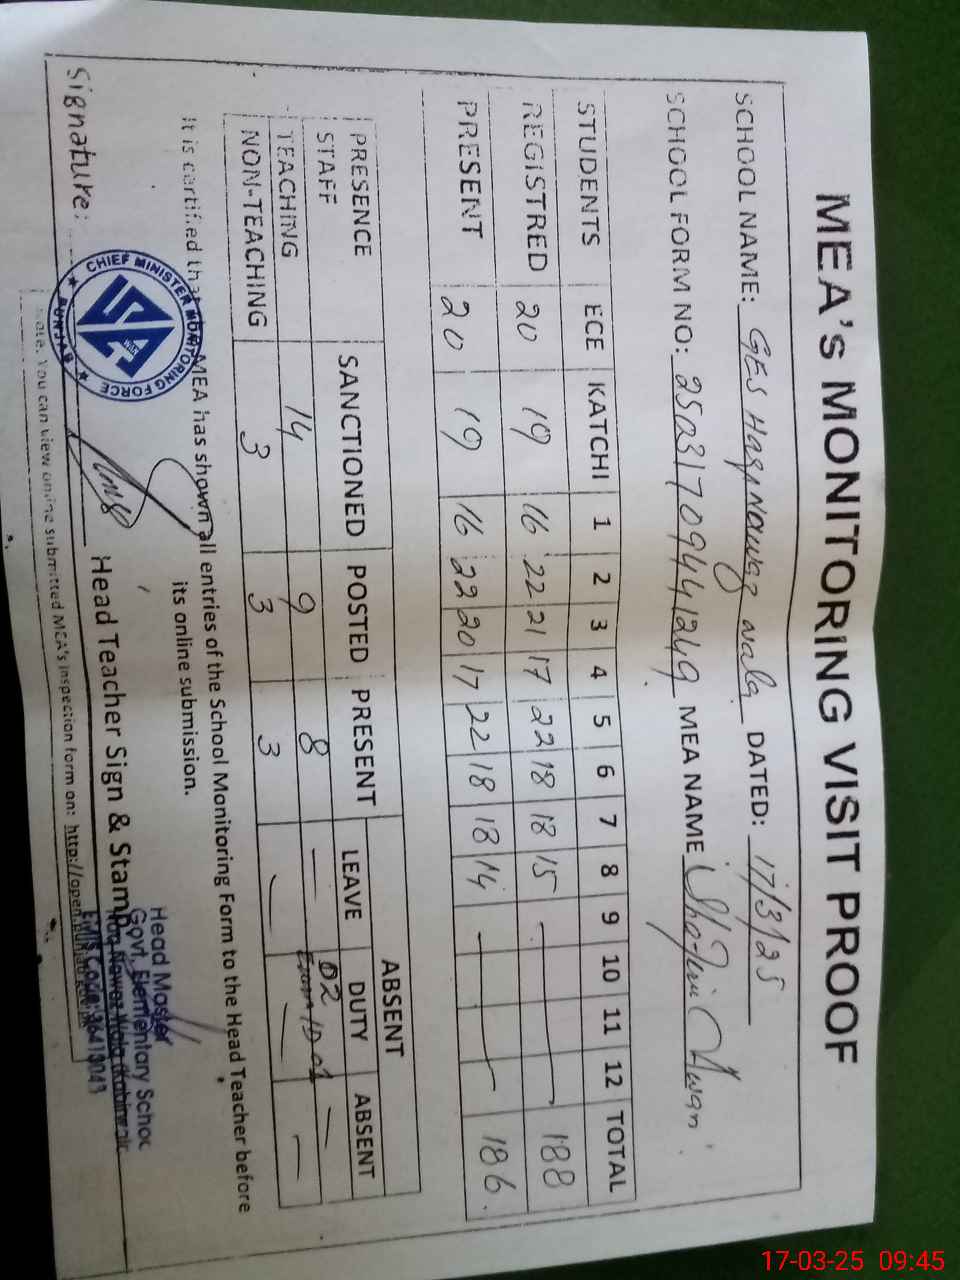 MEA's MONITORING VISIT PROOF
SCHOOL NAME: GES Haqnawaz wala DATED: 17/3/25
SCHOOL FORM NO: MEA NAME Awan
STUDENTS ECE KATCHI 1 2 3 4 5 6 7 8 9 10 11 12 TOTAL
REGISTRED 20 19 16 22 21 17 22 18 18 15 — 188
PRESENT 20 19 16 22 20 17 22 18 18 14 — 186
PRESENCE STAFF SANCTIONED POSTED PRESENT ABSENT
LEAVE DUTY ABSENT
TEACHING 14 9 8 — 02 —
NON-TEACHING 3 3 3 — — —
It is certified that MEA has shown all entries of the School Monitoring Form to the Head Teacher before
its online submission.
Signature:
Head Teacher Sign & Stamp
CHIEF MINISTER MONITORING FORCE
PUNJAB
Head Master
Govt. Elementary Schoo
Haq Nawaz Wala (Kabirwala
EMIS Code:
Note. You can view online submitted MEA's inspection form on: http://open.punjab.gov.pk
17-03-25 09:45